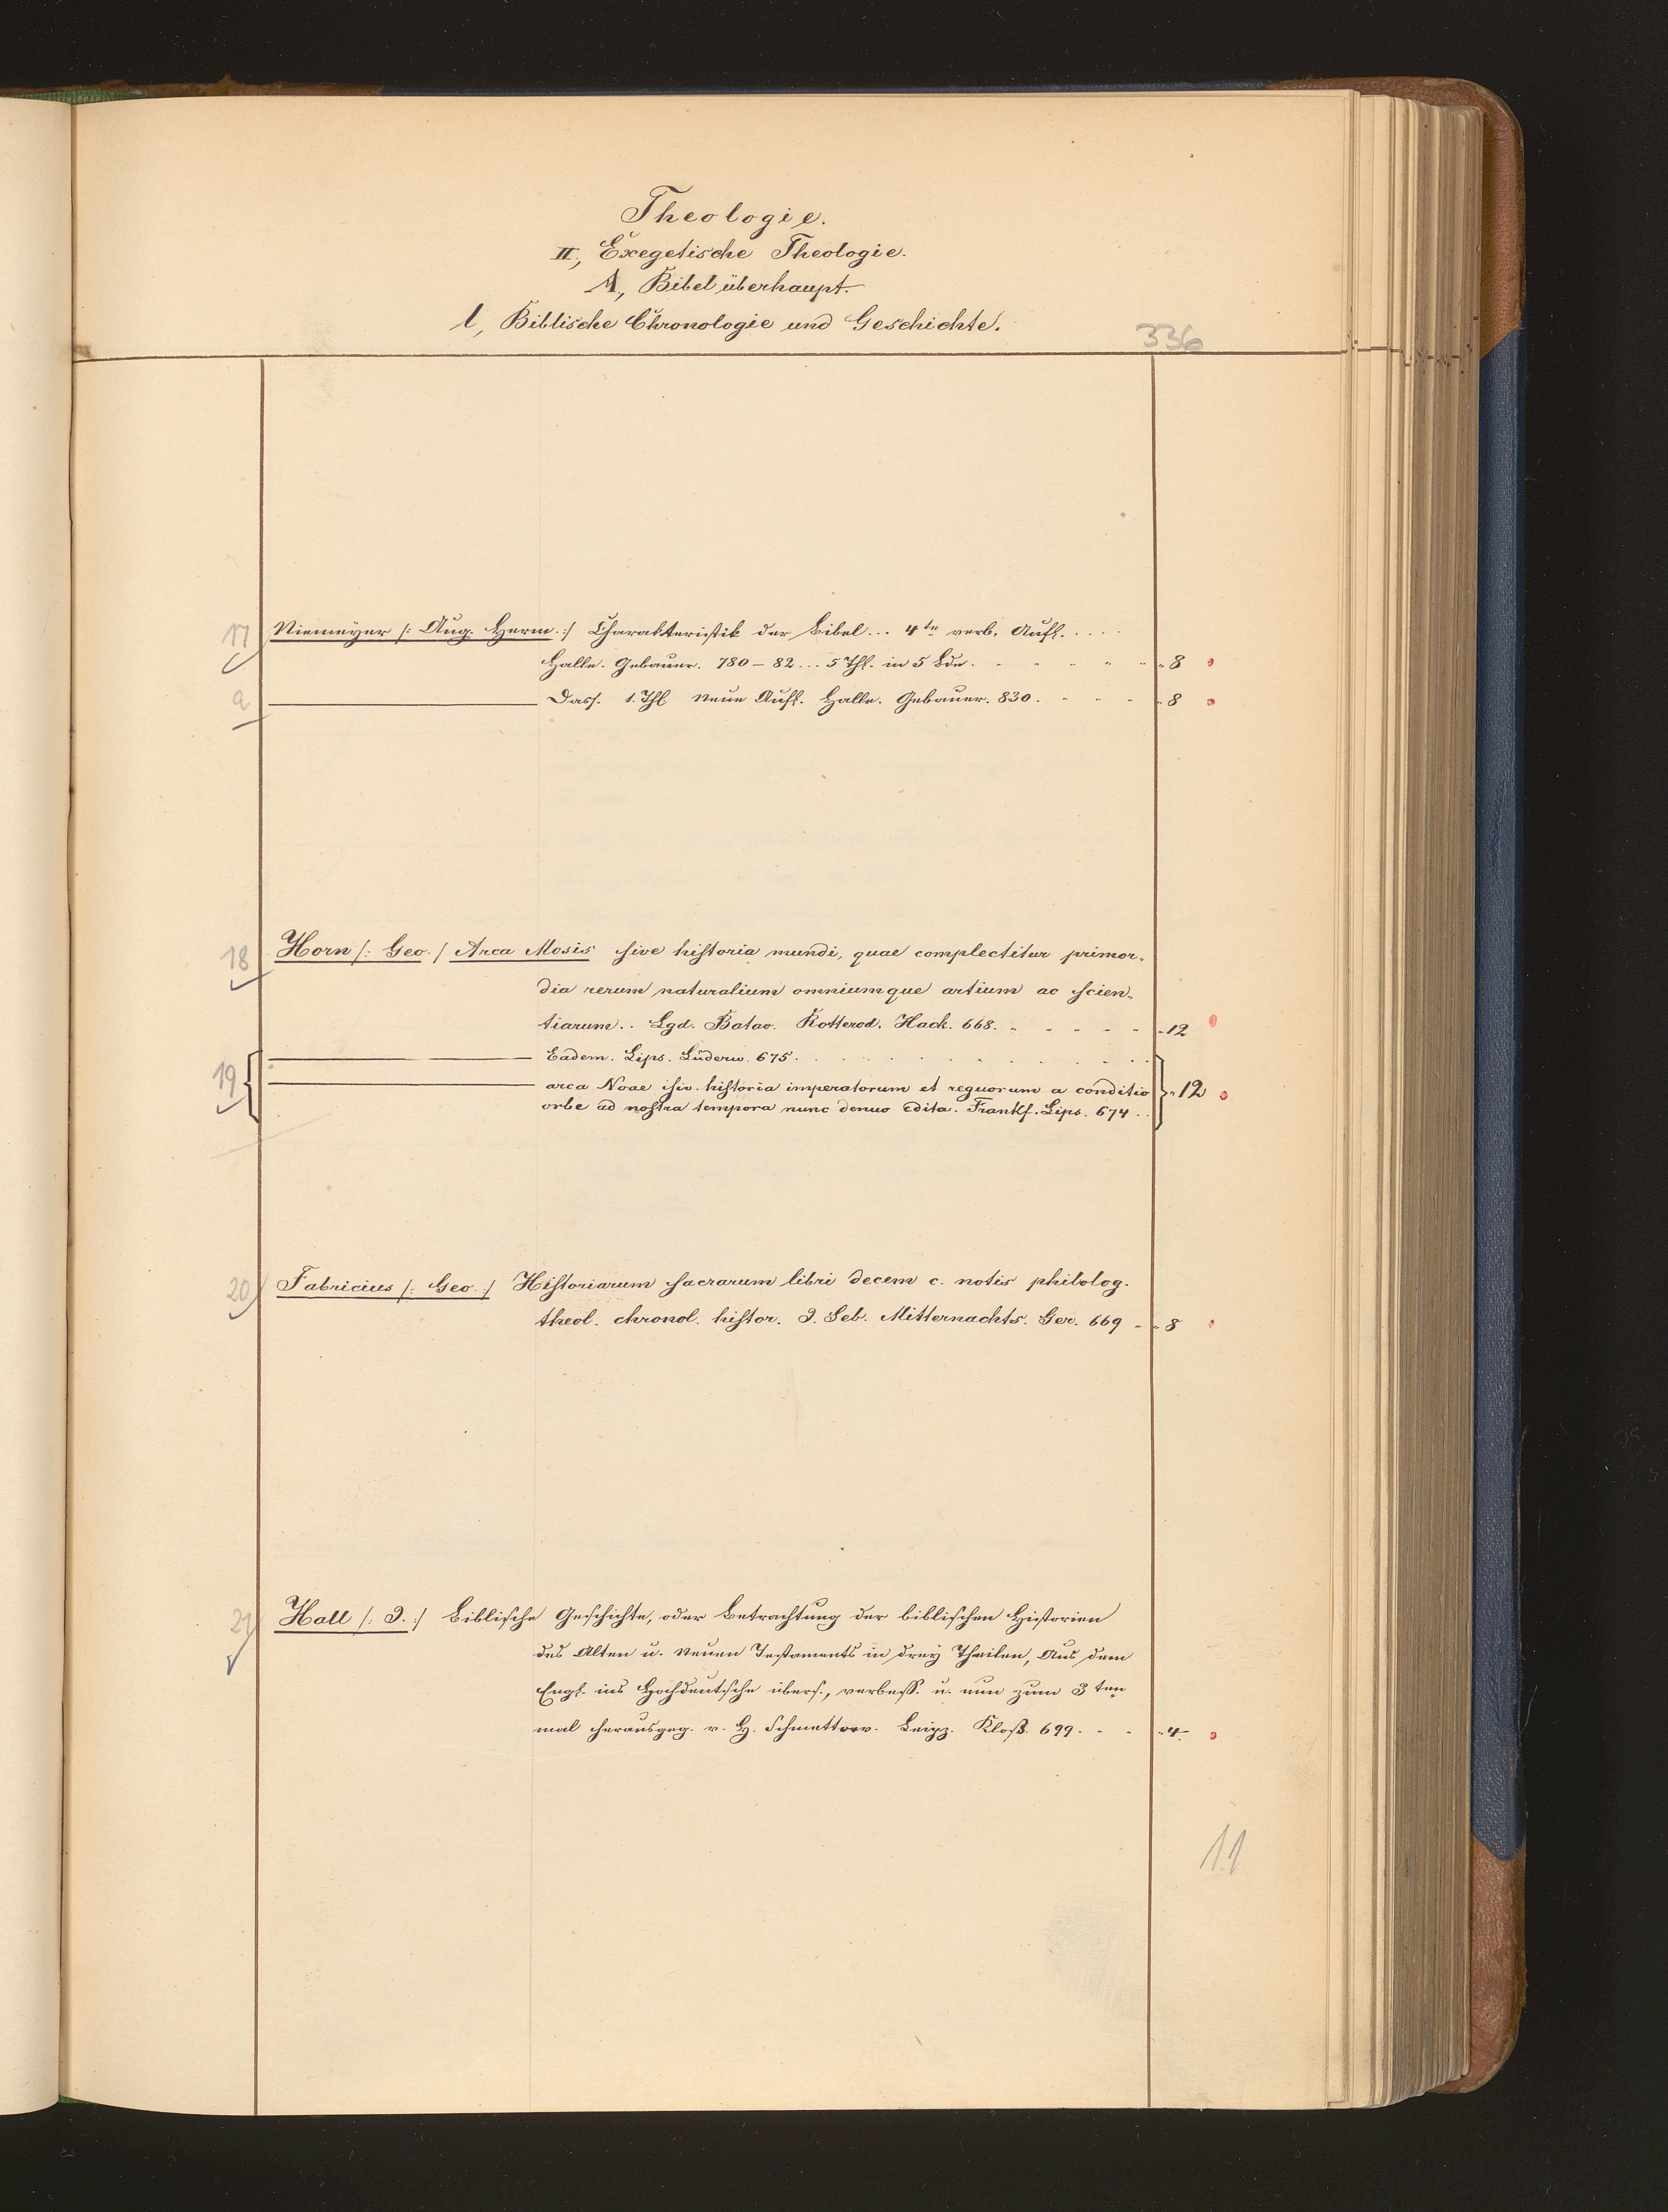 Theologie.
II, Exegetische Theologie.
A, Bibel überhaupt.
l, Biblische Chronologie und Geschichte.
336
17 Niemeyer /: Aug. Herm. :/ Charakteristik der Bibel... 4te verb. Aufl.....
Halle. Gebauer. 780-82... 5 Thl. in 5 Bde. - - - - - - „8
a Dass. 1. Thl neue Aufl. Halle. Gebauer. 830. - - - „8
18 Horn /: Geo. / Arca Mosis sive historia mundi, quae complectitur primor„
dia rerum naturalium omniumque artium ac scien„
tiarum.. Lgd. Batav. Rotterod. Hack. 668. - - - - - „12
19 Eadem. Lips. Lüderw. 675. . . . . . . . .
arca Noae siv. historia imperatorum et regnorum a conditio „12
orbe ad nostra tempora nunc denuo edita. Frankf. Lips. 674..
20 Fabricius /: Geo. :/ Historiarum sacrarum libri decem c. notis philolog.
theol. chronol. histor. J. Seb. Mitternachts. Ger. 669 - „8
21 Hall /: J. :/ Biblische Geschichte, oder Betrachtung der biblischen Historien
des Alten u. Neuen Testaments in drey Theilen, Aus dem
Engl. ins Hochdeutsche übers., verbess. u. nun zum 3ten
mal herausgeg. v. H. Schmettow. Leipz. Kloß. 699. - - „4.
11